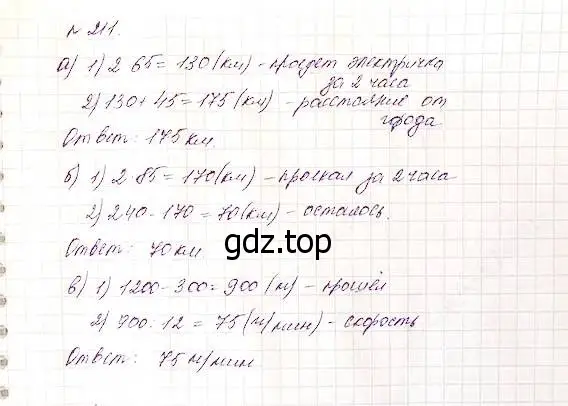 № 211.
а) 1) 2·65 = 130 (км) - проедет электричка
за 2 часа
2) 130 + 45 = 175 (км) - расстояние от
города
Ответ: 175 км.
б) 1) 2·85 = 170 (км) - проехал за 2 часа
2) 240 - 170 = 70 (км) - осталось.
Ответ: 70 км
gdz.top
в) 1) 1200 - 300 = 900 (м) - прошёл
2) 900 : 12 = 75 (м/мин) - скорость
Ответ: 75 м/мин